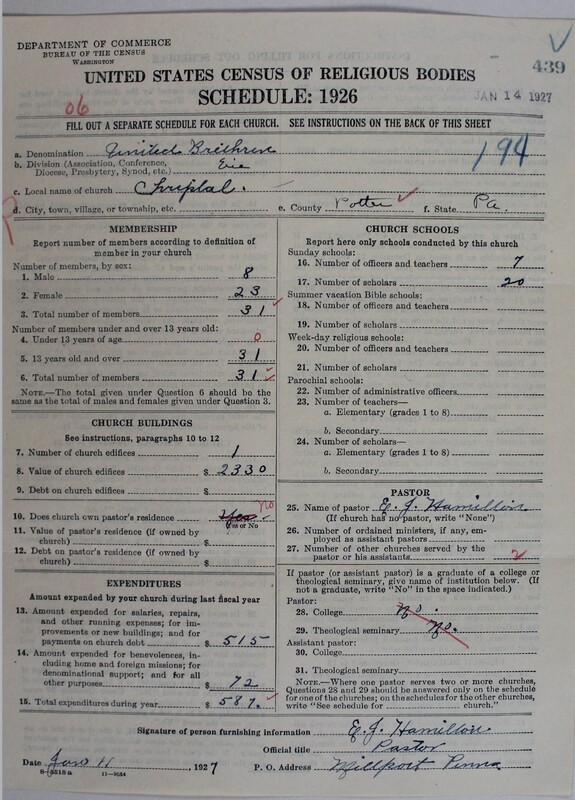 DEPARTMENT OF COMMERCE
BUREAU OF THE CENSUS
WASHINGTON
439
UNITED STATES CENSUS OF RELIGIOUS BODIES
SCHEDULE: 1926
JAN 14 1927
06
FILL OUT A SEPARATE SCHEDULE FOR EACH CHURCH. SEE INSTRUCTIONS ON THE BACK OF THIS SHEET
194
a. Denomination United Brethren
b. Division (Association, Conference, Diocese, Presbytery, Synod, etc.) Erie
c. Local name of church
d. City, town, village, or township, etc.
e. County Potter f. State Pa.
MEMBERSHIP
Report number of members according to definition of
member in your church
Number of members, by sex:
1. Male 8
2. Female 23
3. Total number of members 31
Number of members under and over 13 years old:
4. Under 13 years of age 0
5. 13 years old and over 31
6. Total number of members 31
NOTE.—The total given under Question 6 should be
same as the total of males and females given under Question 3.
CHURCH BUILDINGS
See instructions, paragraphs 10 to 12
7. Number of church edifices 1
8. Value of church edifices $ 2330
9. Debt on church edifices $
10. Does church own pastor's residence Yes no
Yes or No
11. Value of pastor's residence (if owned by
church) $
12. Debt on pastor's residence (if owned by
church) $
EXPENDITURES
Amount expended by your church during last fiscal year
13. Amount expended for salaries, repairs,
and other running expenses; for im-
provements or new buildings; and for
payments on church debt $ 515
14. Amount expended for benevolences, in-
cluding home and foreign missions; for
denominational support; and for all
other purposes $ 72
15. Total expenditures during year $ 587.
CHURCH SCHOOLS
Report here only schools conducted by this church
Sunday schools:
16. Number of officers and teachers 7
17. Number of scholars 20
Summer vacation Bible schools:
18. Number of officers and teachers
19. Number of scholars
Week-day religious schools:
20. Number of officers and teachers
21. Number of scholars
Parochial schools:
22. Number of administrative officers
23. Number of teachers—
a. Elementary (grades 1 to 8)
b. Secondary
24. Number of scholars—
a. Elementary (grades 1 to 8)
b. Secondary
PASTOR
25. Name of pastor E. J. Hamilton
(If church has no pastor, write "None")
26. Number of ordained ministers, if any, em-
ployed as assistant pastors
27. Number of other churches served by the
pastor or his assistants 2
If pastor (or assistant pastor) is a graduate of a college or
theological seminary, give name of institution below. (If
not a graduate, write "No" in the space indicated.)
Pastor:
28. College No.
29. Theological seminary No.
Assistant pastor:
30. College
31. Theological seminary
NOTE.—Where one pastor serves two or more churches,
Questions 28 and 29 should be answered only on the schedule
for one of the churches; on the schedules for the other churches,
write "See schedule for church."
Signature of person furnishing information E. J. Hamilton
Official title Pastor
Date Jan 11, 1927 P. O. Address Millport Penna
8-5218a 11-9664